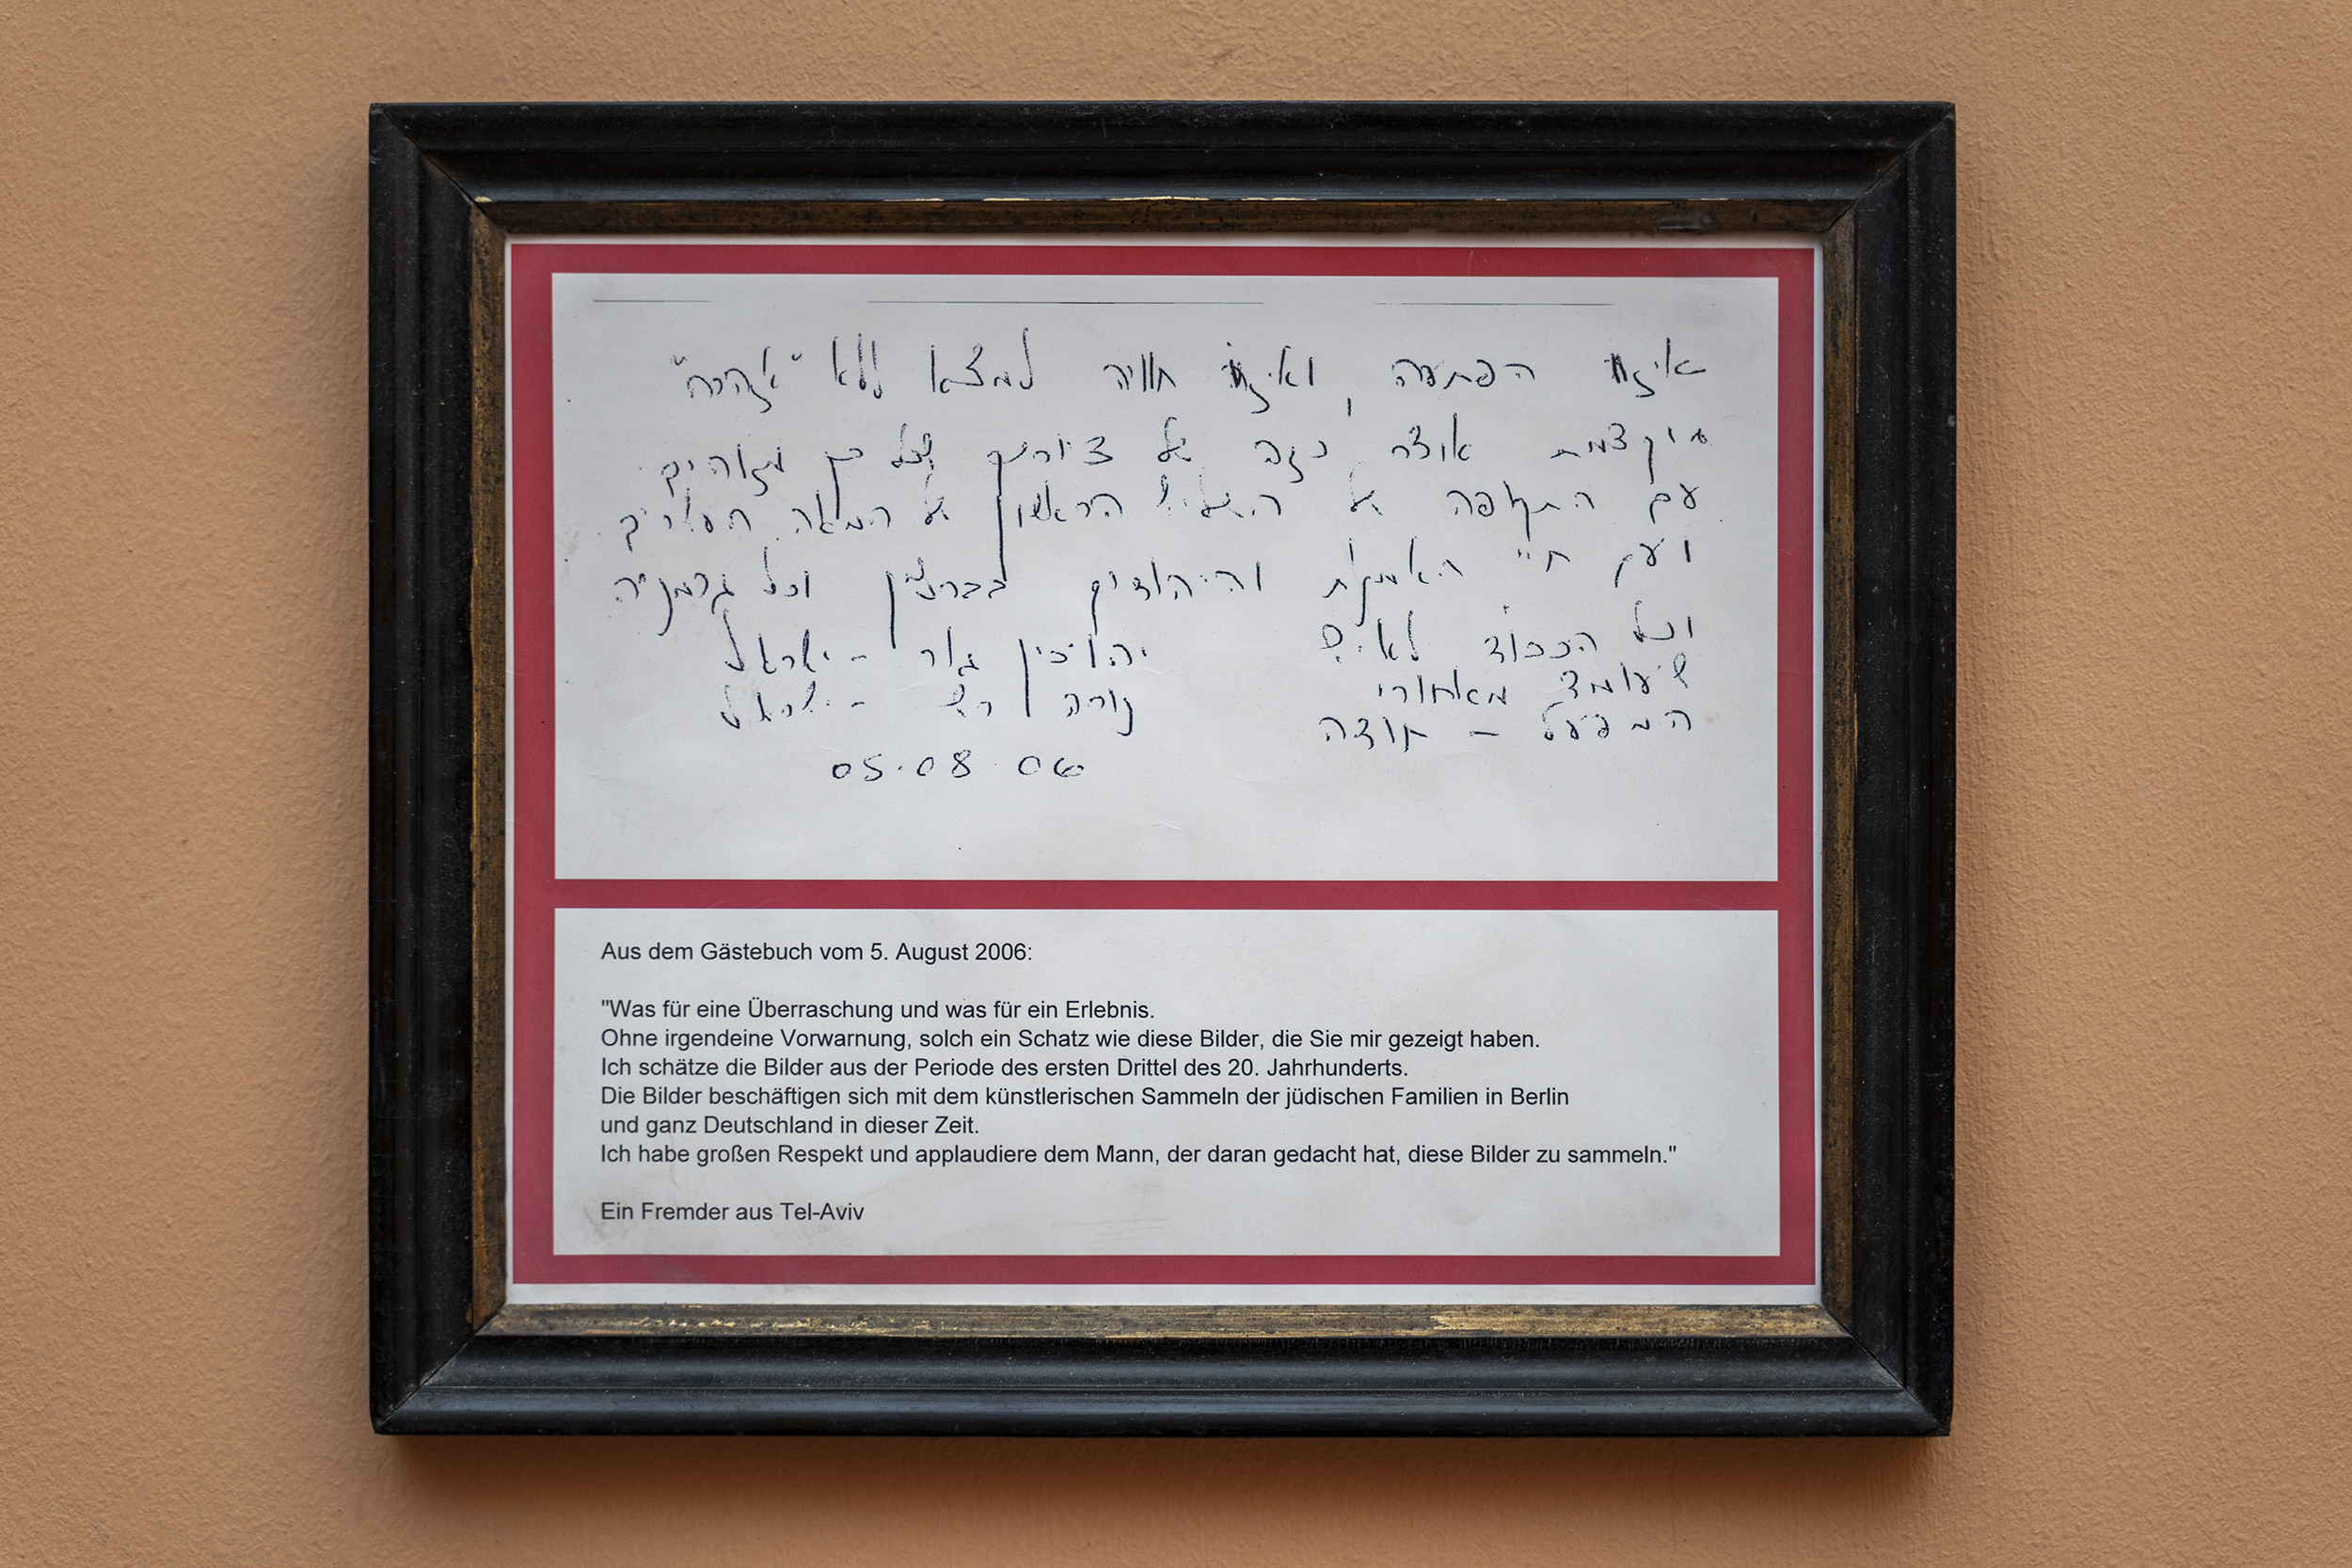 איזו הפתעה, ואיזו חוויה למצא ללא "אזהרה"
מוקדמת אוצר כזה של ציורים שכל כך מזוהים
עם התקופה של השליש הראשון של המאה העשרים
ועם חיי האמנות והיהודים בברלין וכל גרמניה
וכל הכבוד לאיש
שעומד מאחורי
המפעל - תודה
יהויכין גור - ישראל
נורה - ישראל
05.08.06
Aus dem Gästebuch vom 5. August 2006:
"Was für eine Überraschung und was für ein Erlebnis.
Ohne irgendeine Vorwarnung, solch ein Schatz wie diese Bilder, die Sie mir gezeigt haben.
Ich schätze die Bilder aus der Periode des ersten Drittel des 20. Jahrhunderts.
Die Bilder beschäftigen sich mit dem künstlerischen Sammeln der jüdischen Familien in Berlin
und ganz Deutschland in dieser Zeit.
Ich habe großen Respekt und applaudiere dem Mann, der daran gedacht hat, diese Bilder zu sammeln."
Ein Fremder aus Tel-Aviv